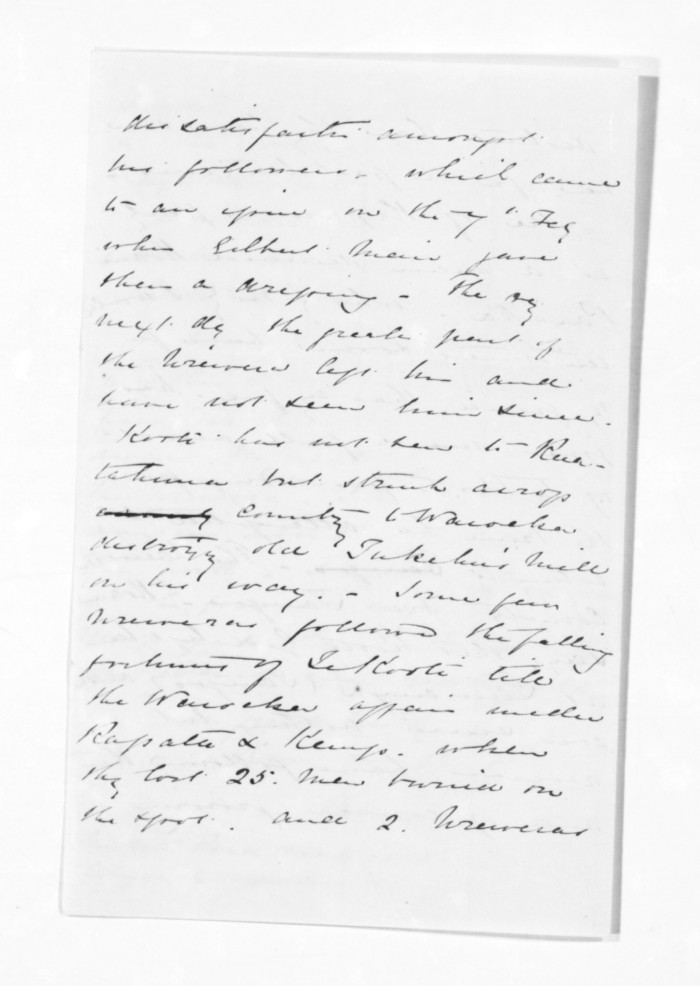 dissatisfactn amongst
his followers, which came
to an issue on the 7th Feby
when Gilbert Mair gave
them a dressing - The vy
next dy the greater part of
the Urewera left him and
have not seen him since.
Kooti has not been to Rua-
tahuna but struck across
country to Waioeka
destroying old Tukehu's Mill
on his way. - Some few
Ureweras followed the falling
fortunes of Te Kooti till
the Waioeka affair under
Ropata & Kemp. when
thy lost 25. men buried on
the spot. and 2. Ureweras